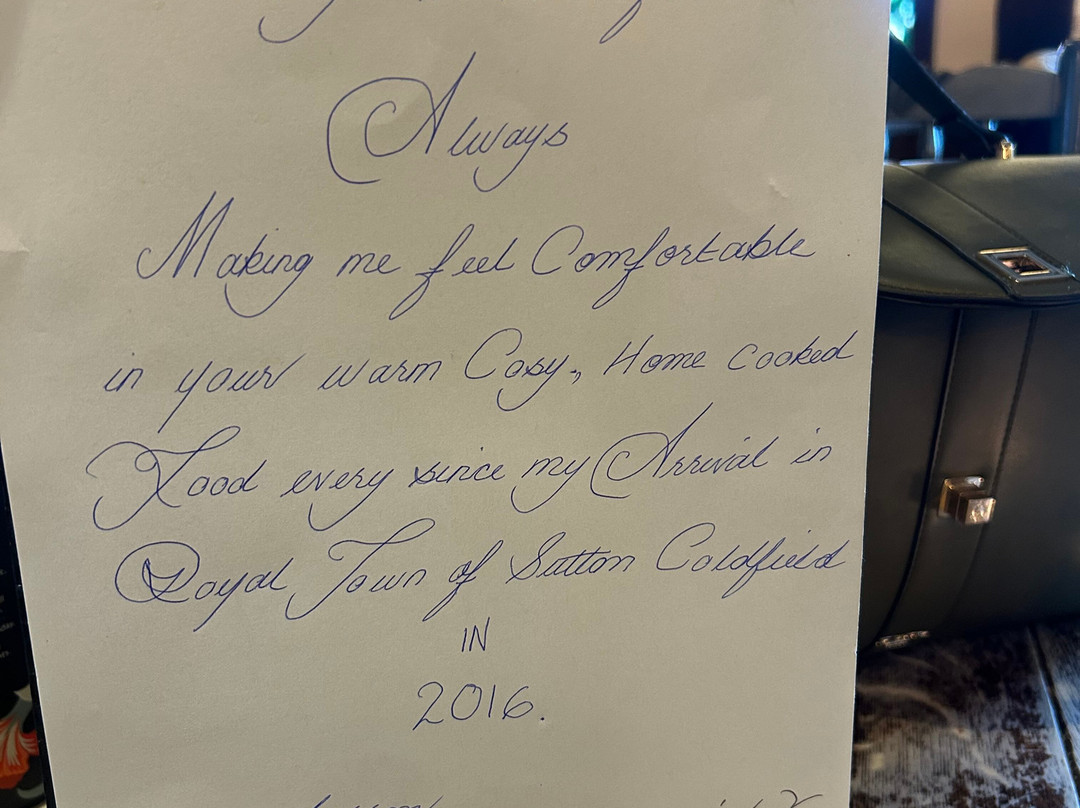 Always
Making me feel Comfortable
in your warm Cosy, Home cooked
Food every since my Arrival in
Royal Town of Sutton Coldfield
IN
2016.